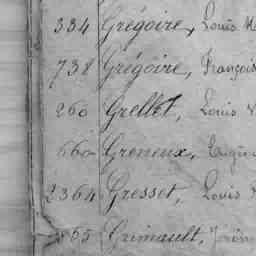 334 Grégoire, Louis
738 Grégoire, François
260 Grellet, Louis V
660 Greneux, Eugèn
2364 Gresset, Louis
565 Grimault, Jérôm